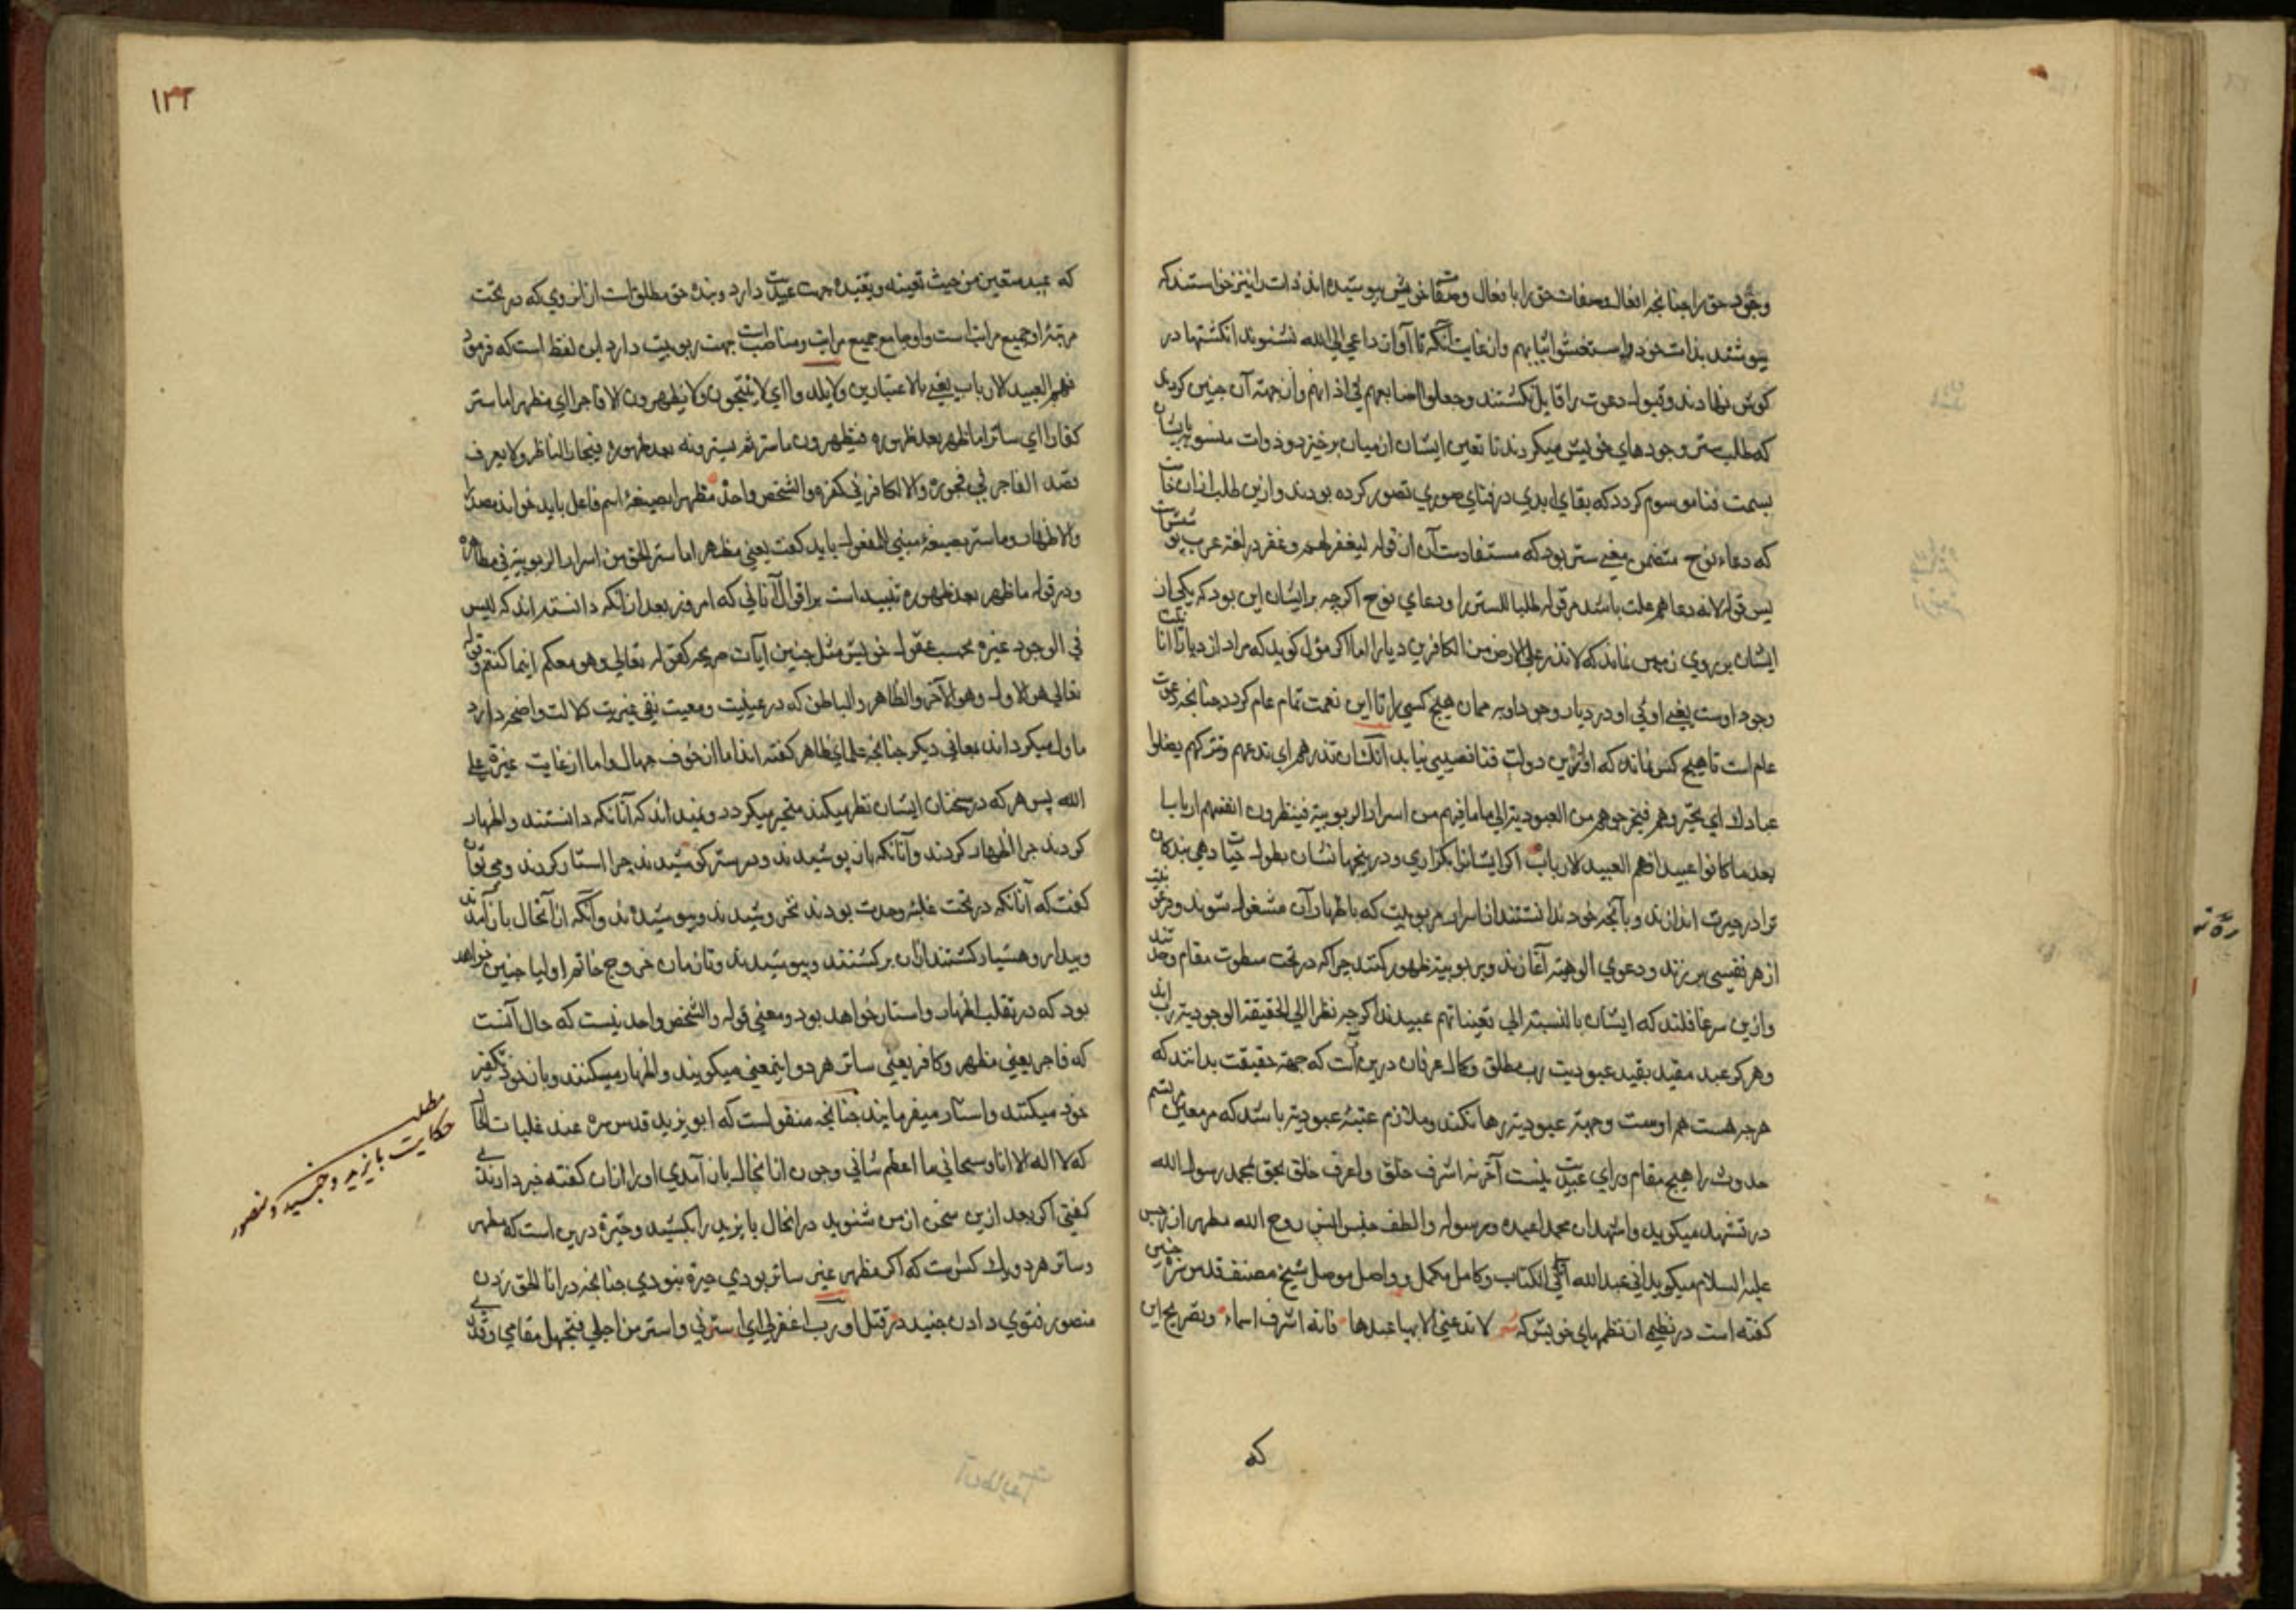 وجود حق را چنانچه افعال وصفات حق را با فعال وصفات خویش پوشیده اند ذات را نیز خواستند که
پوشند بذات خود واستغشوا ثیابهم واز غایت آنکه تا آواز داعی الی الله نشنوند انکشتها در
کوش نهادند وقبول دعوت را قایل نکشتند وجعلوا اصابعهم فی اذانهم واز جهة آن چنین کردند
که طلب ستر وجودهای خویش میکردند تا تعین ایشان از میان برخیزد وذوات منسوبه بایشان
بسمت فنا موسوم کردد که بقای ابدی در فنای صوری تصور کرده بودند وازین طلب
که دعاء نوح متضمن معنی ستر بود که مستفادست آن از قوله لیغفر لهم وغفر در لغة عرب
پس قوله لانه دعاهم علت باشد مر قوله طلبا للستر را ودعای نوح اکرچه بر ایشان این بود که یکی از
ایشان بر روی زمین نماند که لا تذر علی الارض من الکافرین دیارا اما اکر مؤل کوید که مراد از دیار
وجود اوست یعنی اوئی او در دیار وجود او بر ممان هیچ کسی را تا این نعمت تمام عام کردد چنانچه دعوت
عام است تا هیچ کس نماند که او ازین دولت فنا نصیبی نیابد انک ان تذرهم ای تدعهم وتترکهم یضلوا
عبادك ای یحیروهم فیخرجوهم من العبودیة الی ما فیهم من اسرار الربوبیة فینظرون انفسهم اربابا
بعد ما کانوا عبیدا فهم العبید الارباب اکر ایشانرا بکذاری ودر پنجها نشان بطول حیات دهی بندکان
ترا در حیرت اندازند وبآنچه خود ندانستند از اسرار ربوبیت که باظهار آن مشغول شوند
از هر نفسی برزند ودعوی الوهیة آغازند وبربوبیة ظهور کنند چرا که در تحت سطوت مقام
وازین سر غافلند که ایشان بالنسبة الی تعیناتهم عبیدند اکرچه نظرا الی الحقیقة الوجودیة رب اند
وهر کو عبد مقید بقید عبودیت رب مطلق وکمال عرفان درین آنست که جهة حقیقت بدانند که
هرچه هست هم اوست وجهة عبودیة رها نکند وملازم عتبهٔ عبودیة باشد که مر معین
حدوث را هیچ مقام ورای عبدیت نیست آخر نه اشرف خلق واعرف خلق بحق محمد رسول الله
در تشهد میکوید واشهد ان محمدا عبده ورسوله والطف جنس انس روح الله مطهر از رجس
علیه السلام میکوید انی عبد الله آتانی الکتاب وکامل مکمل وواصل موصل شیخ مصنف قدس سره چنین
کفته است در نظمی از نظمهای خویش که لا تدعنی الا بیا عبدها فانه اشرف اسماء وبصریح این
که
۱۲۲
که عبد متعین من حیث تعینه وتقیده جهت عبدیت دارد وبنده حق مطلق است از انروی که در تحت
مرتبهٔ از جمیع مراتبست واو جامع جمیع مراتب ومناصب است جهت ربوبیت دارد این لفظ است که فرمود
فهم العبید الارباب یعنی بالاعتبارین ولا یلدوا ای لا ینتجون ولا یظهرون الا فاجرا ای مظهرا ما ستر
کفارا ای ساترا ما ظهر بعد ظهوره فیظهرون ما ستر ثم یسترونه بعد ظهوره فیحار الناظر ولا یعرف
قصد الفاجر فی فجوره ولا الکافر فی کفره والشخص واحد مظهرا بصیغهٔ اسم فاعل باید خواند
والاظهار وما ستر بصیغهٔ مبنی للمفعول باید کفت یعنی مظهرا ما ستر الحق من اسرار الربوبیة فی مظاهره
ودر قوله ما ظهر بعد ظهوره تنبیه است بر اقوال آنانی که امروز بعد از آنکه دانسته اند که لیس
فی الوجود غیره بحسب عقول خویش مثل چنین آیات صریحه کقوله تعالی وهو معکم اینما کنتم وقوله
تعالی هو الاول وهو الآخر والظاهر والباطن که در عینیت ومعیت نفی غیریت دلالت واضحه دارد
ماول میکردانند بمعانی دیکر چنانچه علمای ظاهر کفته اند اما از خوف جهال واما از غایت غیرة علی
الله پس هر که در سخنان ایشان نظر میکند متحیر میکردد ونمیداند که آنانکه دانستند واظهار
کردند چرا اظهار کردند وآنانکه باز پوشیدند ودر ستر کوشیدند چرا استار کردند ومی توان
کفت که آنانکه در تحت غلبهٔ وحدت بودند نخروشیدند وپوشیدند وآنکه از آنحال باز آمدند
وبیدار وهشیار کشتند ازان برکشتند وپوشیدند وتا زمان خروج خاتم اولیا چنین خواهد
بود که در تقلب اظهار واستار خواهد بود ومعنی قوله والشخص واحد نیست که حال آنست
که فاجر یعنی مظهر وکافر یعنی ساتر هر دو اینمعنی میکویند واظهار میکنند وباز خود تکفیر
خود میکنند واستار میفرمایند چنانچه منقولست که ابو یزید قدس سره عند غلبات الحال
که لا اله الا انا وسبحانی ما اعظم شانی وچون از آنحال باز آمدی او را ازان کفته خبر دادندی
کفتی اکر بعد ازین سخن از من شنوید در آنحال بایزید را بکشید وحیرة درین است که مظهر
وساتر هر دو یك کس است که اکر مظهر غیر ساتر بودی حیرة نبودی چنانچه در انا الحق زدن
منصور وفتوی دادن جنید در قتل او رب اغفر لی ای استرنی واستر من اجلی فیجهل مقامی وقدری
مطلب
حکایت بایزید وجنید ومنصور